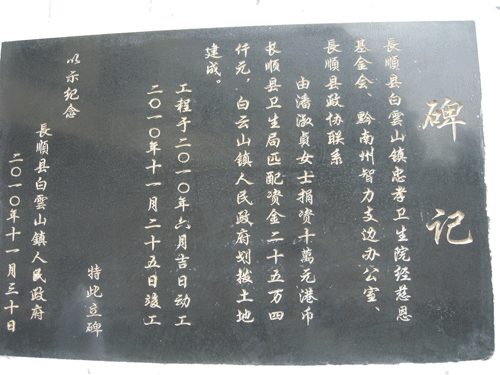 碑记
長順县白雲山镇忠孝卫生院经慈恩
基金会、黔南州智力支边办公室、
長順县政协联系
由潘淑貞女士捐资十萬元港币
長顺县卫生局匹配资金二十五万四
仟元，白云山镇人民政府划拨土地
建成。
工程于二〇一〇年六月吉日动工
二〇一〇年十一月二十五日竣工
特此立碑
以示纪念
長順县白雲山鎮人民政府
二〇一〇年十一月三十日